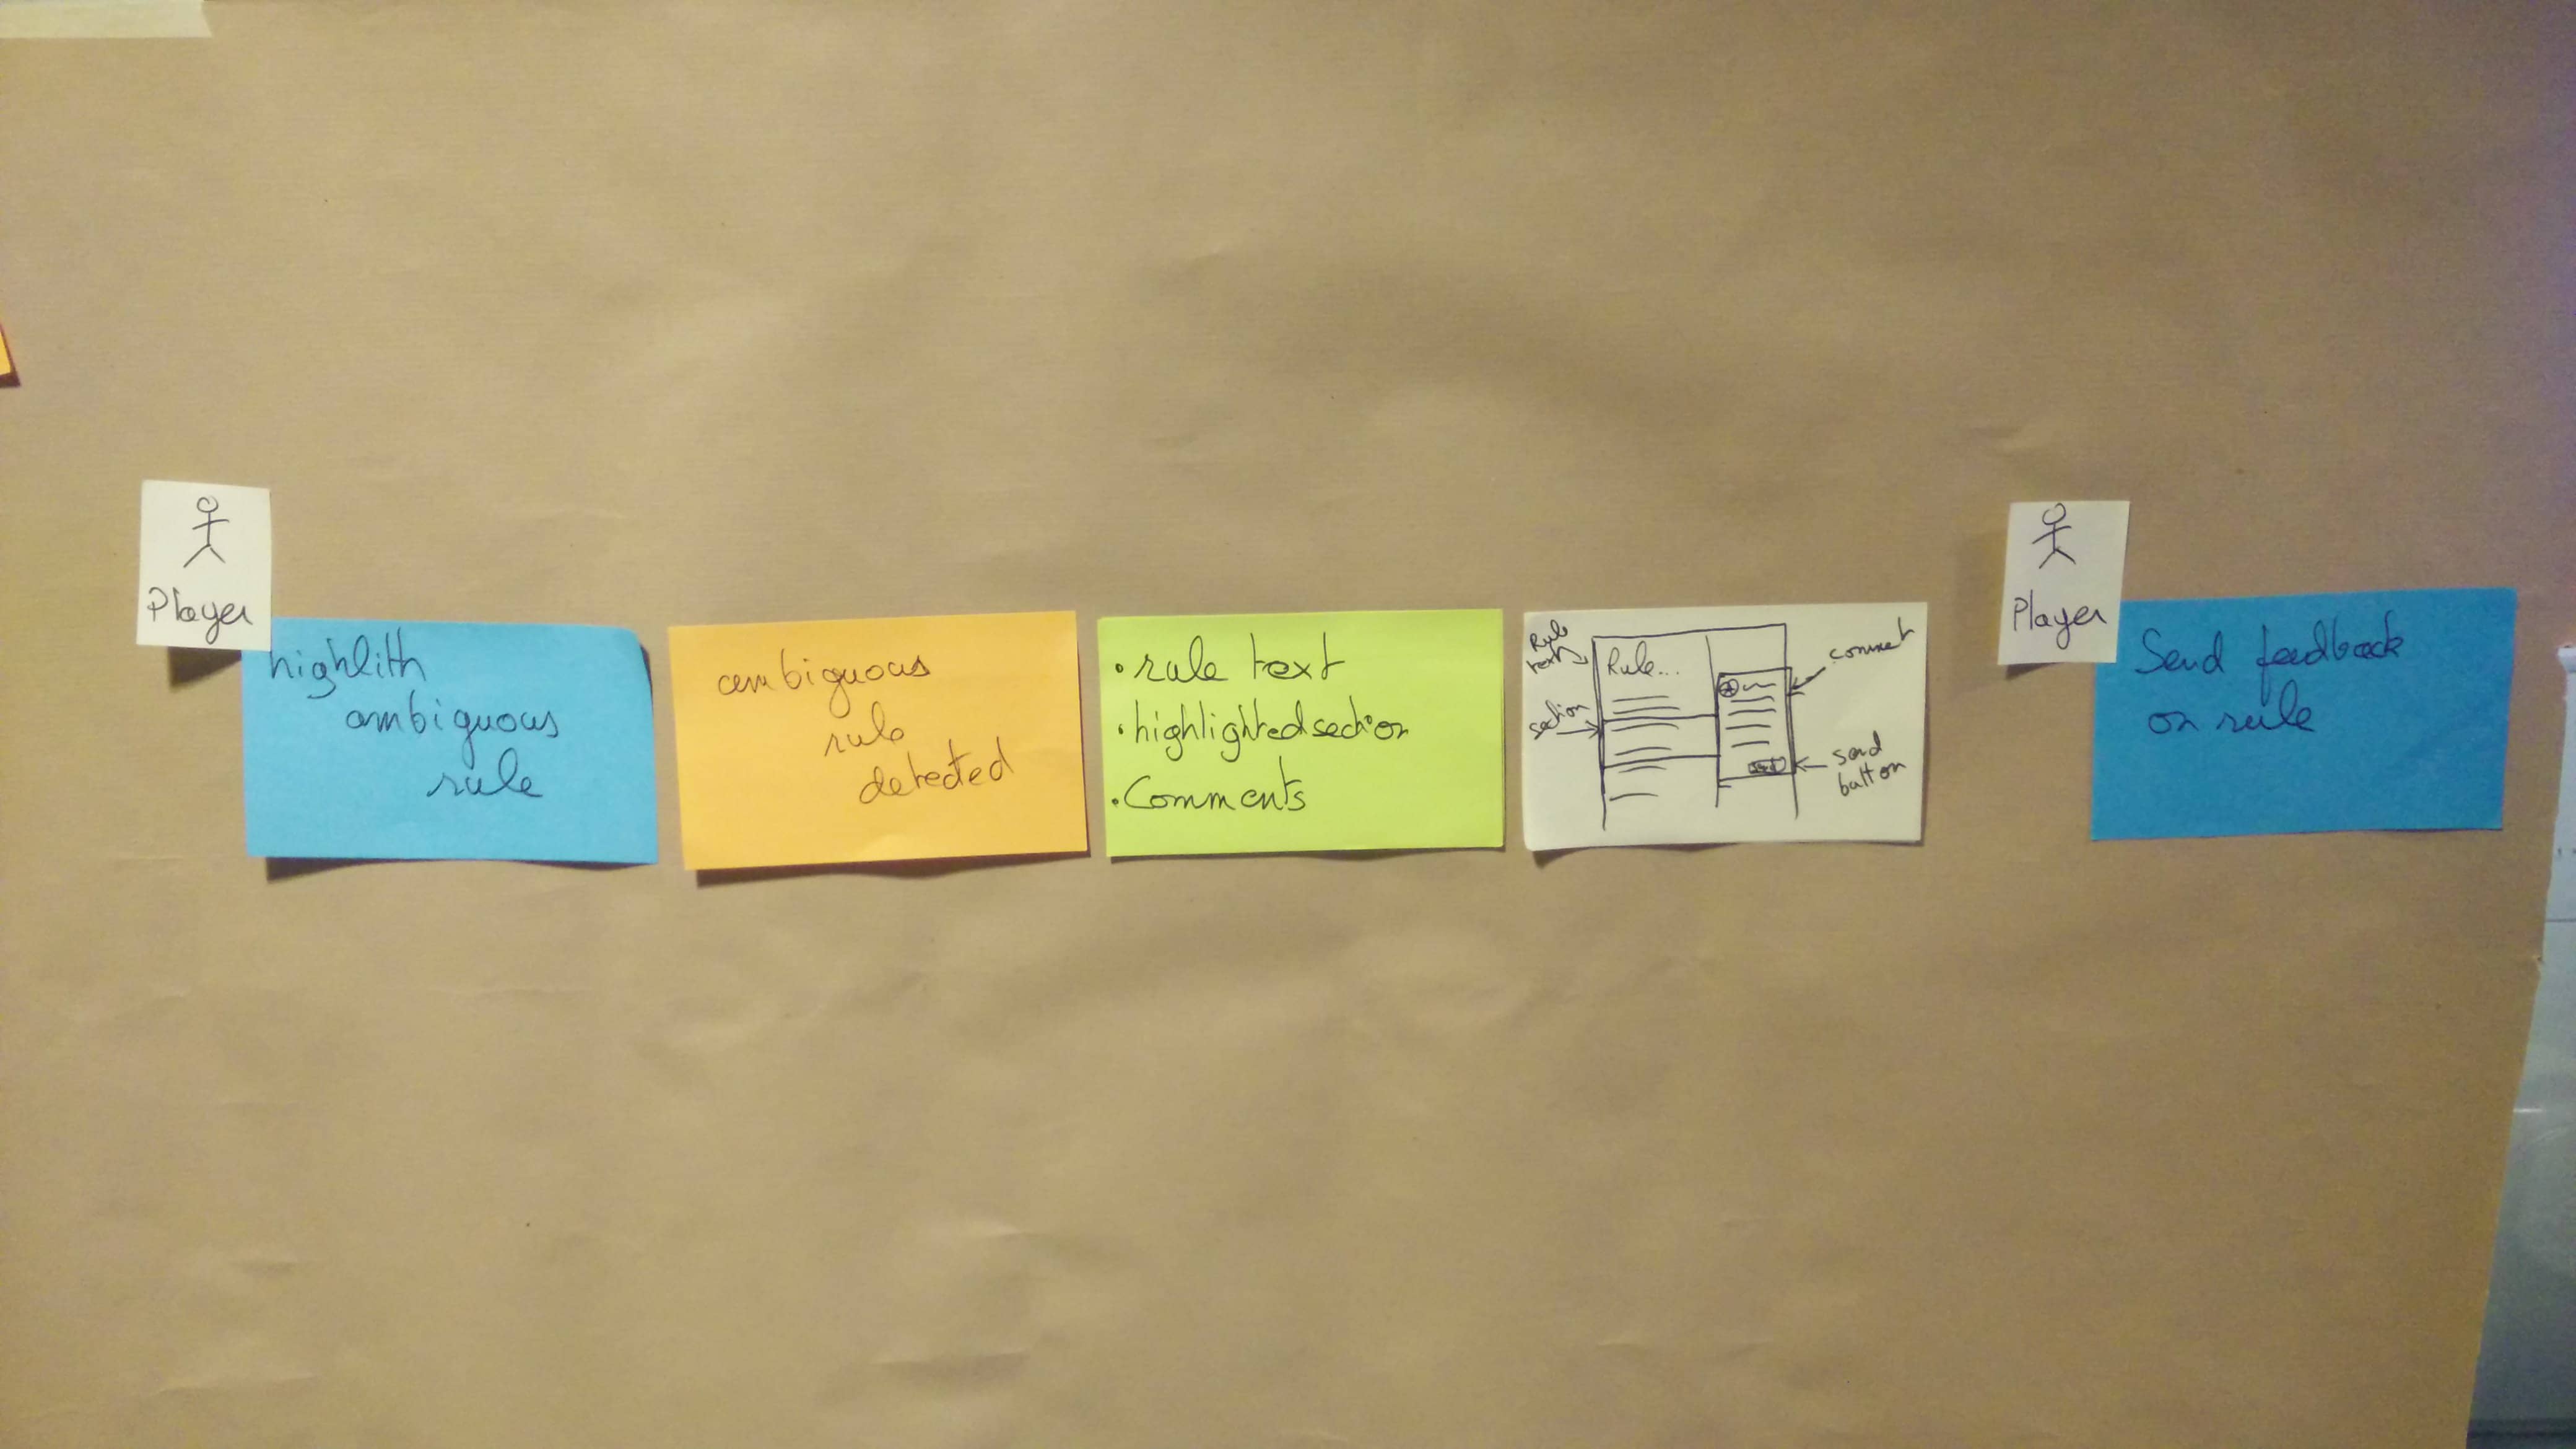 Player
highlith
ambiguous
rule
ambiguous
rule
detected
• rule text
• highlighted section
• Comments
Rule
text
section
Rule...
comment
send
button
Player
Send feedback
on rule